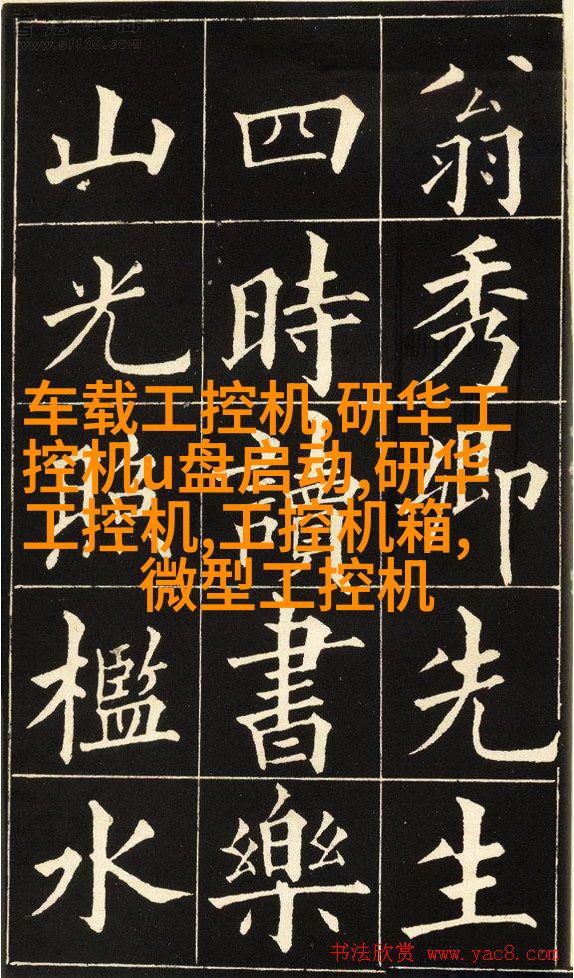 www.sf108.com
翁秀卿先生
四時讀書樂
山光照檻水
车载工控机,研华工
控机u盘启动,研华
工控机,工控机箱,
微型工控机
书法欣赏 www.yac8.com